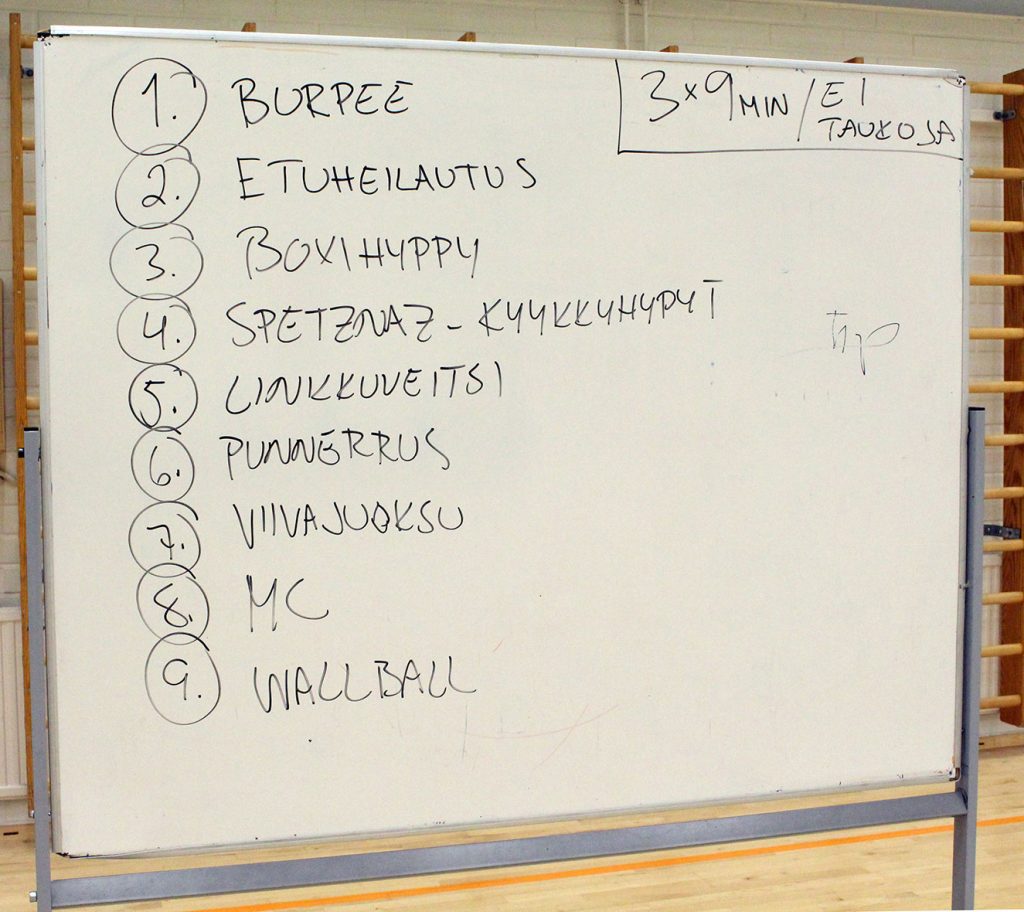 1. BURPEE
2. ETUHEILAUTUS
3. BOXIHYPPY
4. SPETZNAZ-KYYKKYHYPYT
5. LINKKUVEITSI
6. PUNNERRUS
7. VIIVAJUOKSU
8. MC
9. WALLBALL
3x9 MIN / EI
TAUKOJA